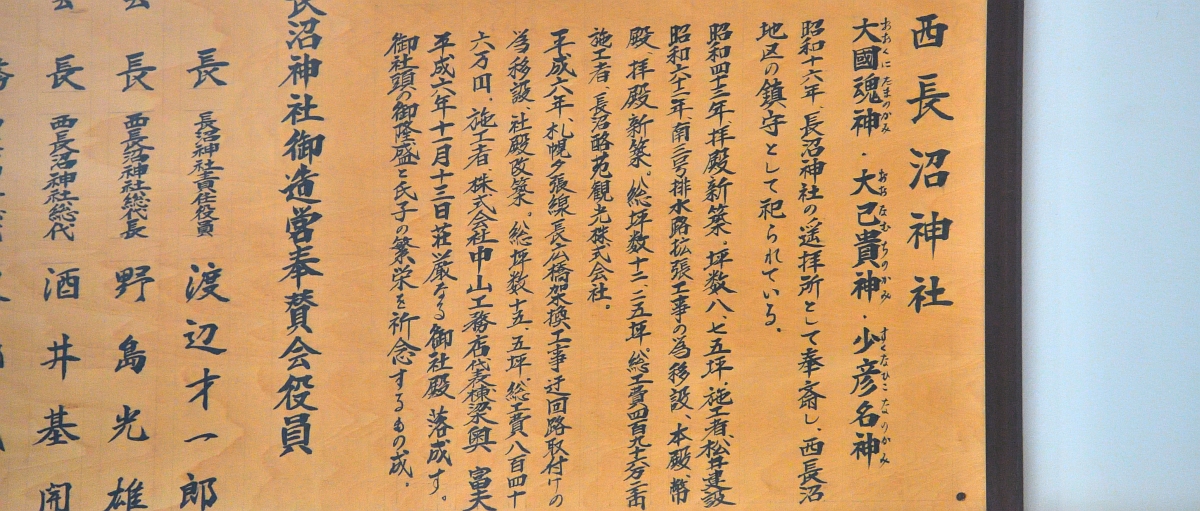 西長沼神社
大國魂神・大己貴神・少彦名神
おおくにたまのかみ おおなむちのかみ すくなひこなのかみ
昭和十六年、長沼神社の遥拝所として奉斎し、西長沼
地区の鎮守として祀られている。
昭和四十三年、拝殿新築。坪数八、七五坪、施工者、松井建設
昭和六十二年、南三号排水路拡張工事の為移設、本殿、幣
殿、拝殿新築。総坪数十二、二五坪。総工費四百九十六万二千円
施工者、長沼略苑観光株式会社。
平成六年、札幌夕張線長広橋架換工事迂回路取付けの
為移設、社殿改築。総坪数十五、五坪、総工費八百四十
六万円、施工者、株式会社中山工務店代表棟梁奥 富夫
平成六年十一月十三日荘厳なる御社殿落成す。
御社頭の御隆盛と氏子の繁栄を祈念するもの成。
長沼神社御造営奉賛会役員
長 長沼神社責任役員 渡辺才一郎
長 西長沼神社総代長 野島光雄
長 西長沼神社総代 酒井基開